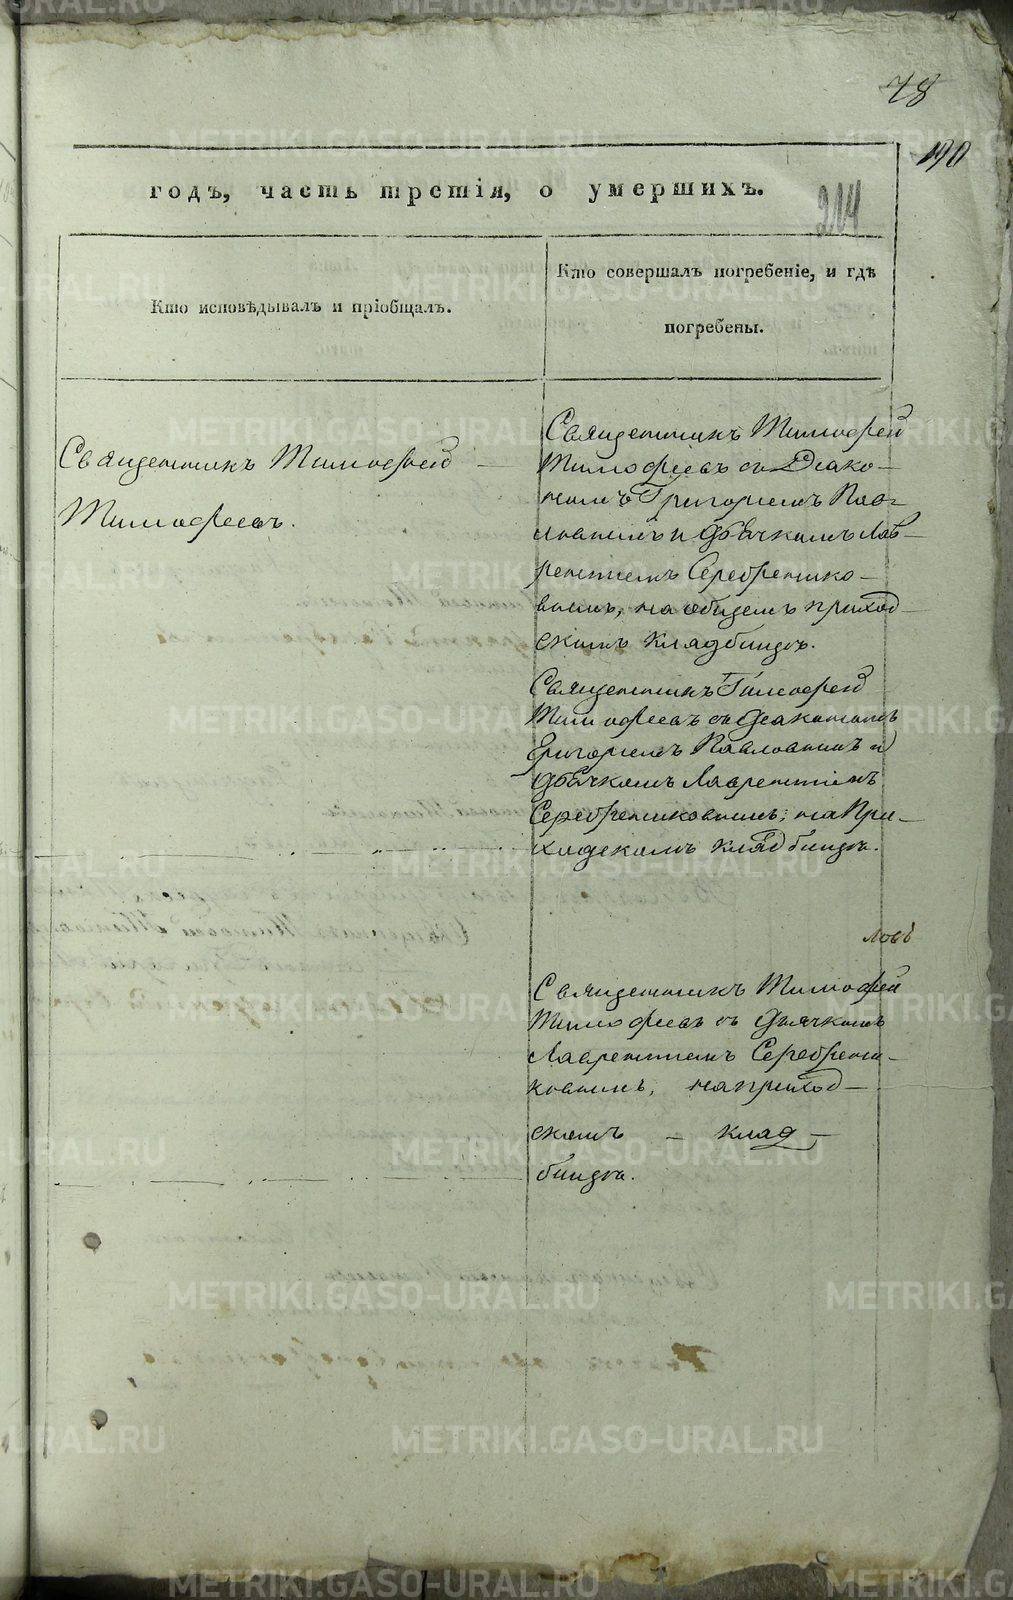 78
190
годъ, часть третія, о умершихъ.
214
Кто исповѣдывалъ и пріобщалъ.
Кто совершалъ погребеніе, и гдѣ
погребены.
Священникъ Тимофей
Тимофеевъ.
Священникъ Тимофей
Тимофѣевъ съ Діако-
номъ Григоріемъ Пав-
ловымъ и дьячкомъ Лав-
рентіемъ Серебренико-
вымъ, на общемъ приход-
скомъ кладбищѣ.
Священникъ Тимофей
Тимофѣевъ съ Діакономъ
Григоріемъ Павловымъ и
дьячкомъ Лаврентіемъ
Серебрениковымъ, на При-
ходскомъ кладбищѣ.
ловъ
Священникъ Тимофей
Тимофѣевъ съ Дьячкомъ
Лаврентіемъ Серебрени-
ковымъ, на приход-
скомъ - клад-
бищѣ.
METRIKI.GASO-URAL.RU